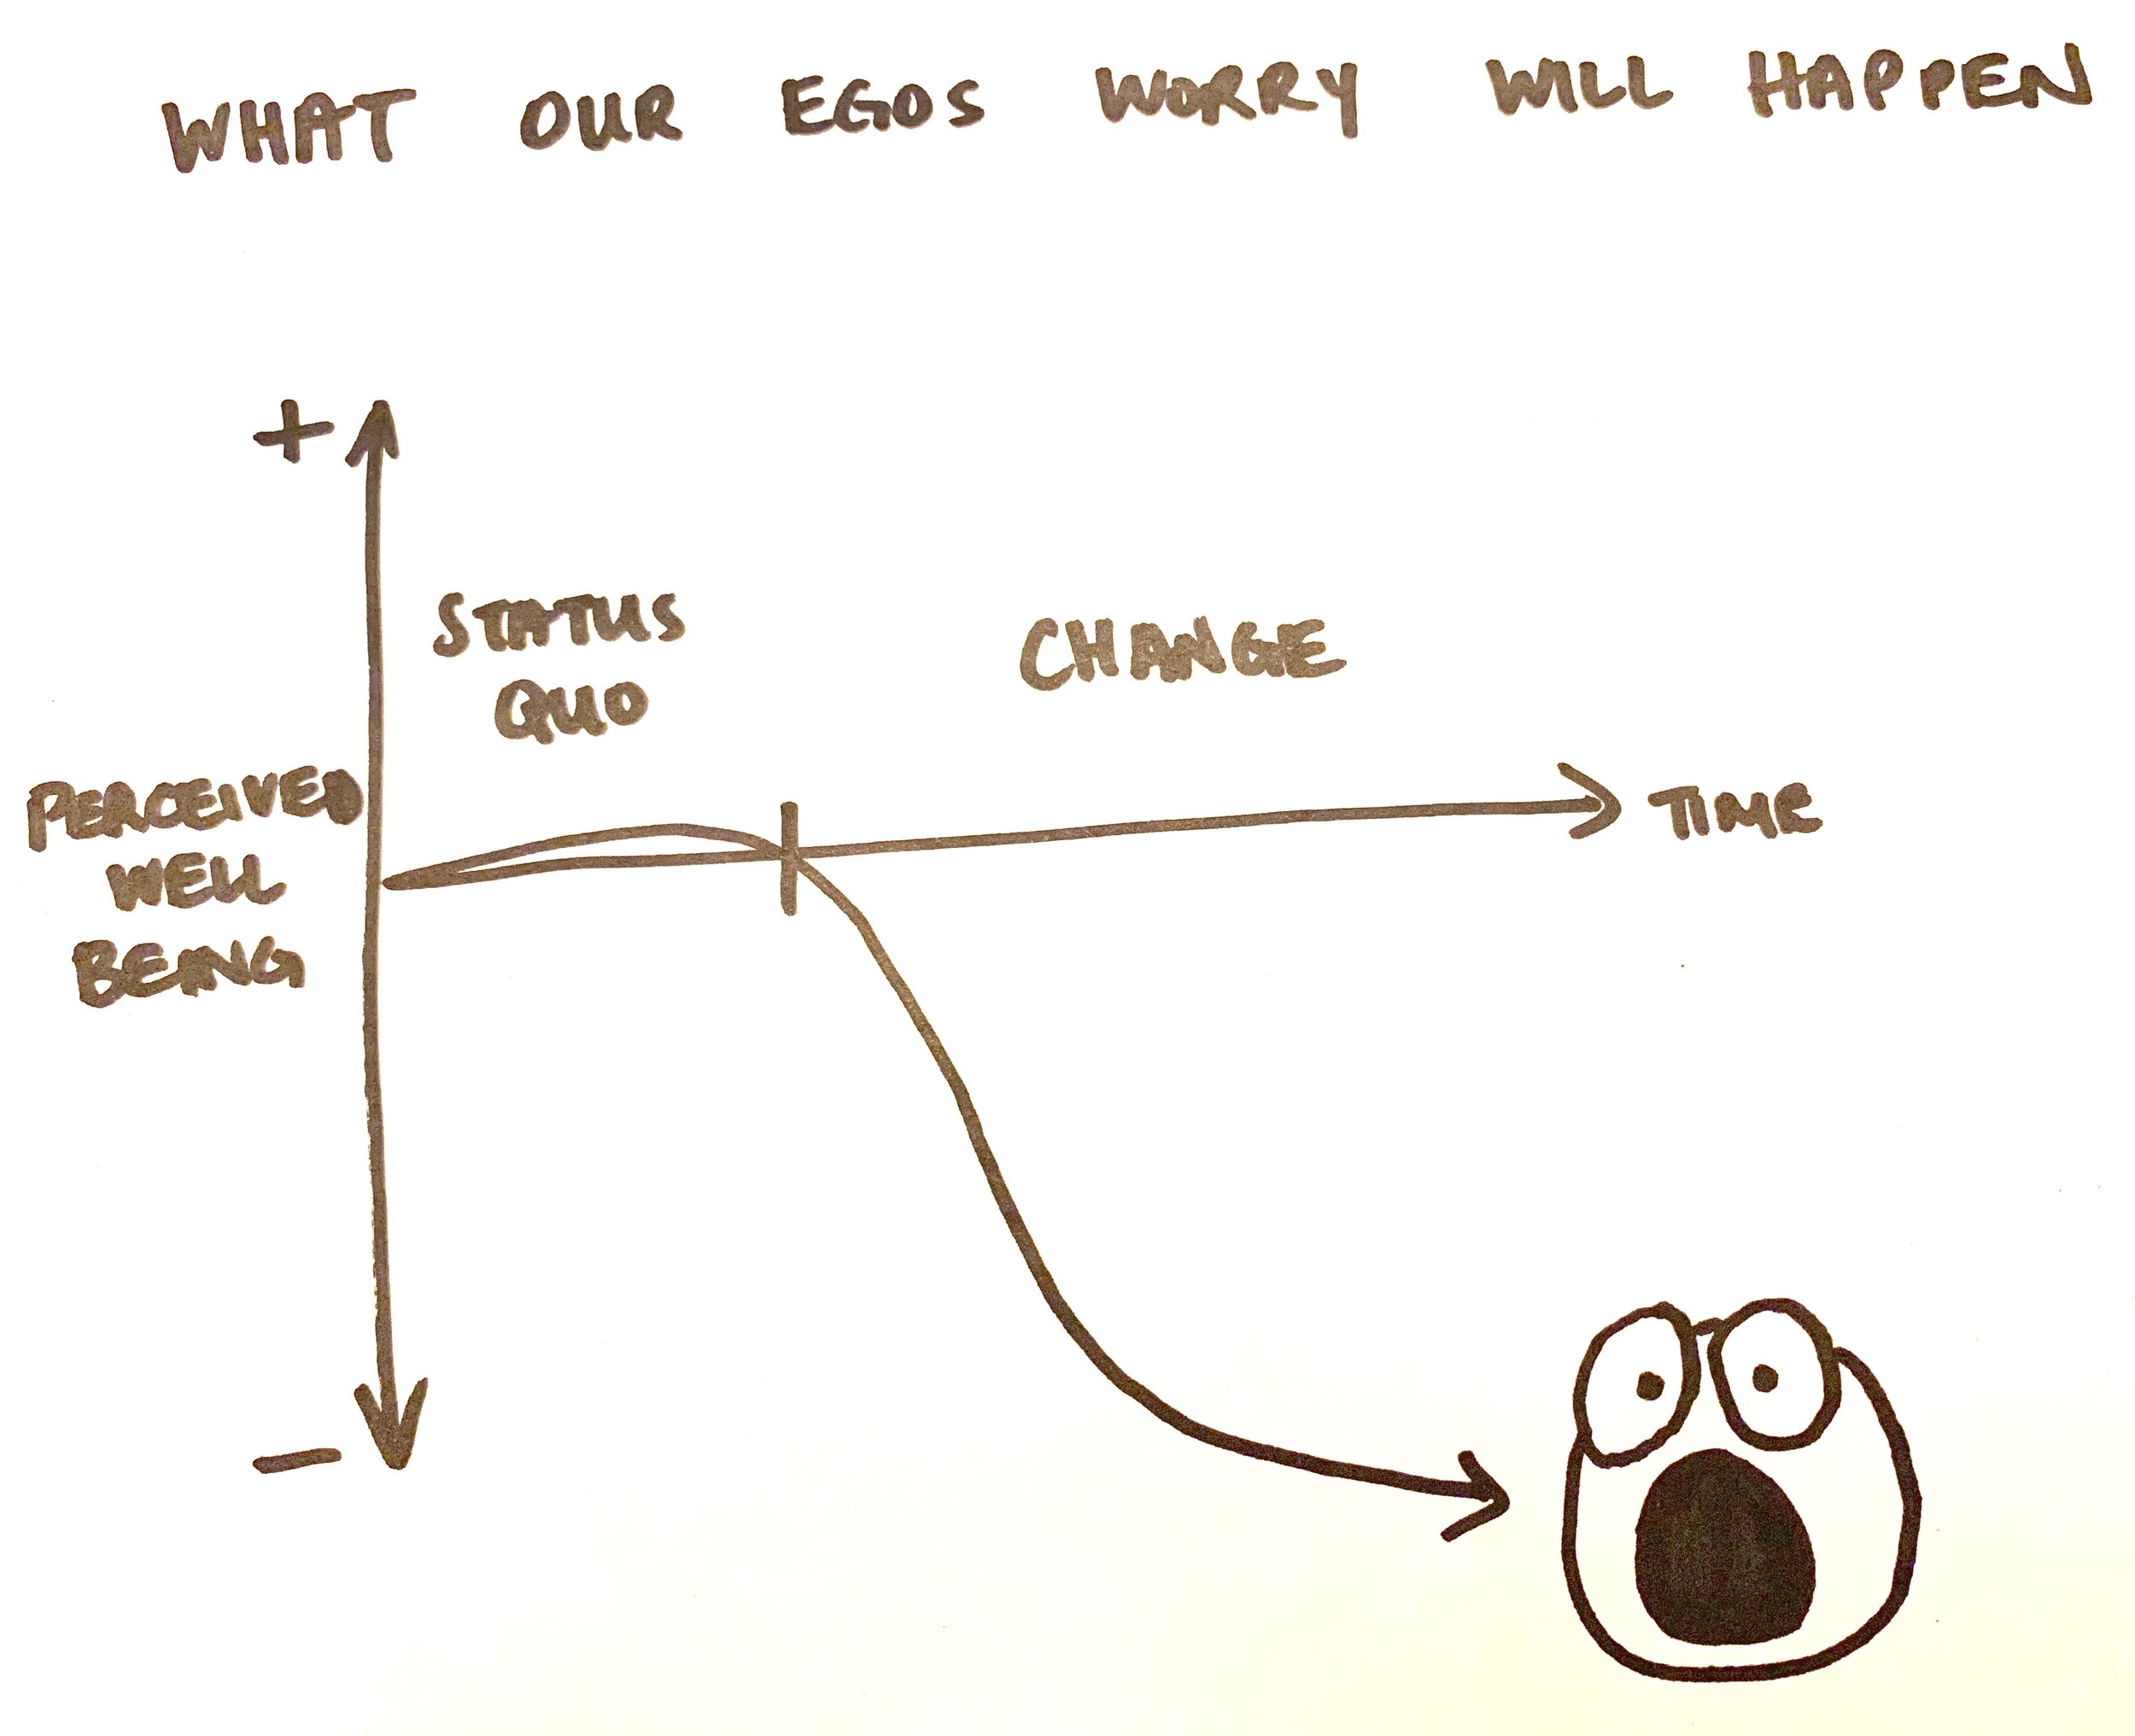 WHAT OUR EGOS WORRY WILL HAPPEN
+
STATUS
QUO
CHANGE
PERCEIVED
WELL
BEING
TIME
-